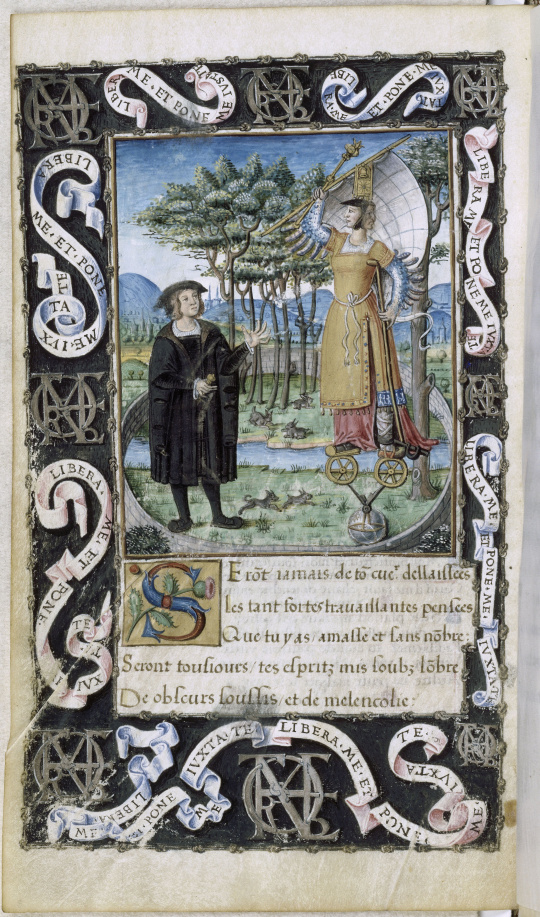 LIBERA ME ET PONE ME IUXTA TE
LIBERA ME ET PONE ME IUXTA TE
LIBERA ME ET PONE ME IUXTA TE
LIBERA ME ET PONE ME IUXTA TE
LIBERA ME ET PONE ME IUXTA TE
LIBERA ME ET PONE ME IUXTA TE
Serõt iamais de tõ cueᵣ dellaissees
les tant fortes travaillantes pensees
Que tu y as / amasse et sans nõbre :
Seront tousiours / tes espritz mis soubz lõbre
De obscurs soussis / et de melencolie :
LIBERA ME ET PONE ME IUXTA TE
LIBERA ME ET PONE ME IUXTA TE